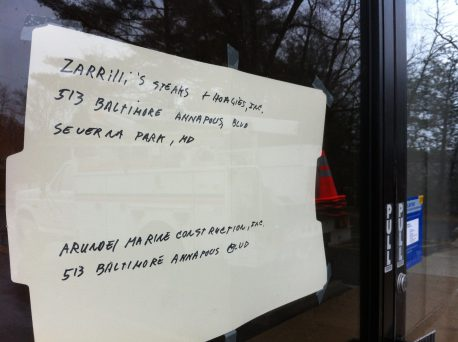 ZARRilli's STEAKS + HOAGIES, INC.
513 BALTIMORE ANNAPOLIS BLVD
SEVERNA PARK, MD
ARUNDEl MARINE CONSTRUCTION, INC.
513 BALTIMORE ANNAPOLIS BLVD
PULL
PULL